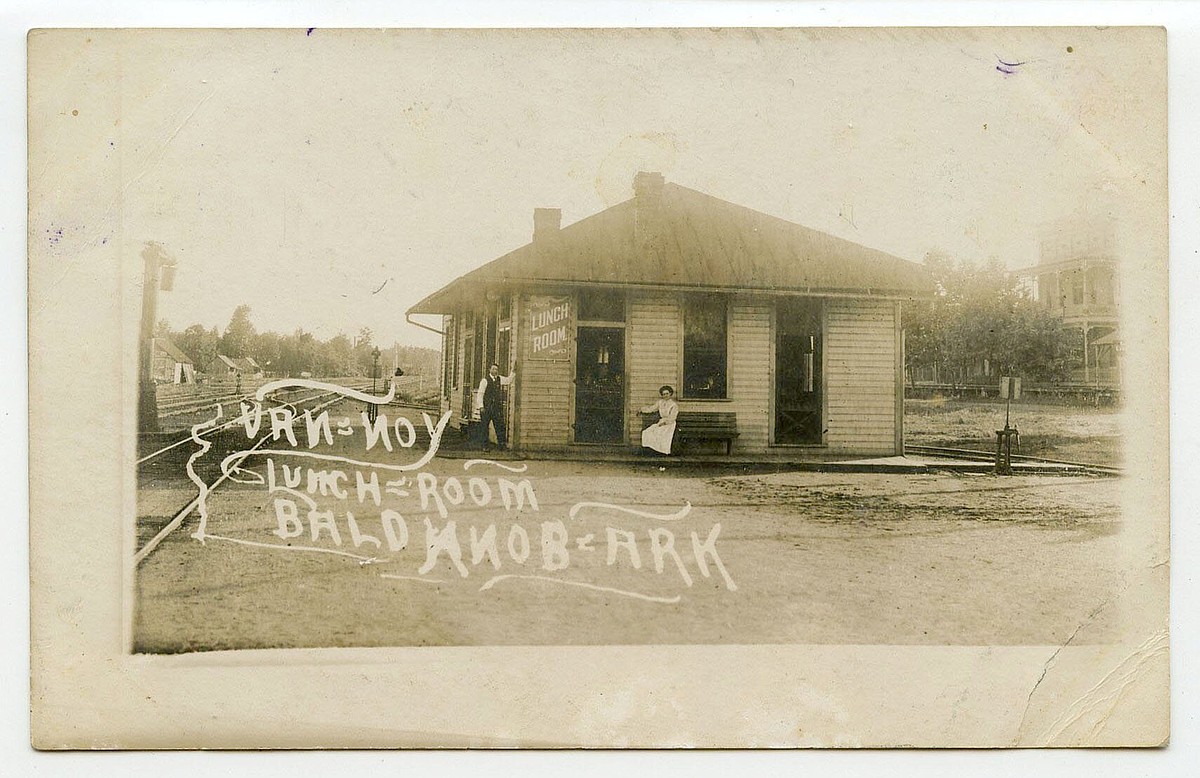 LUNCH
ROOM
VAN=NOY
LUNCH=ROOM
BALD KNOB=ARK